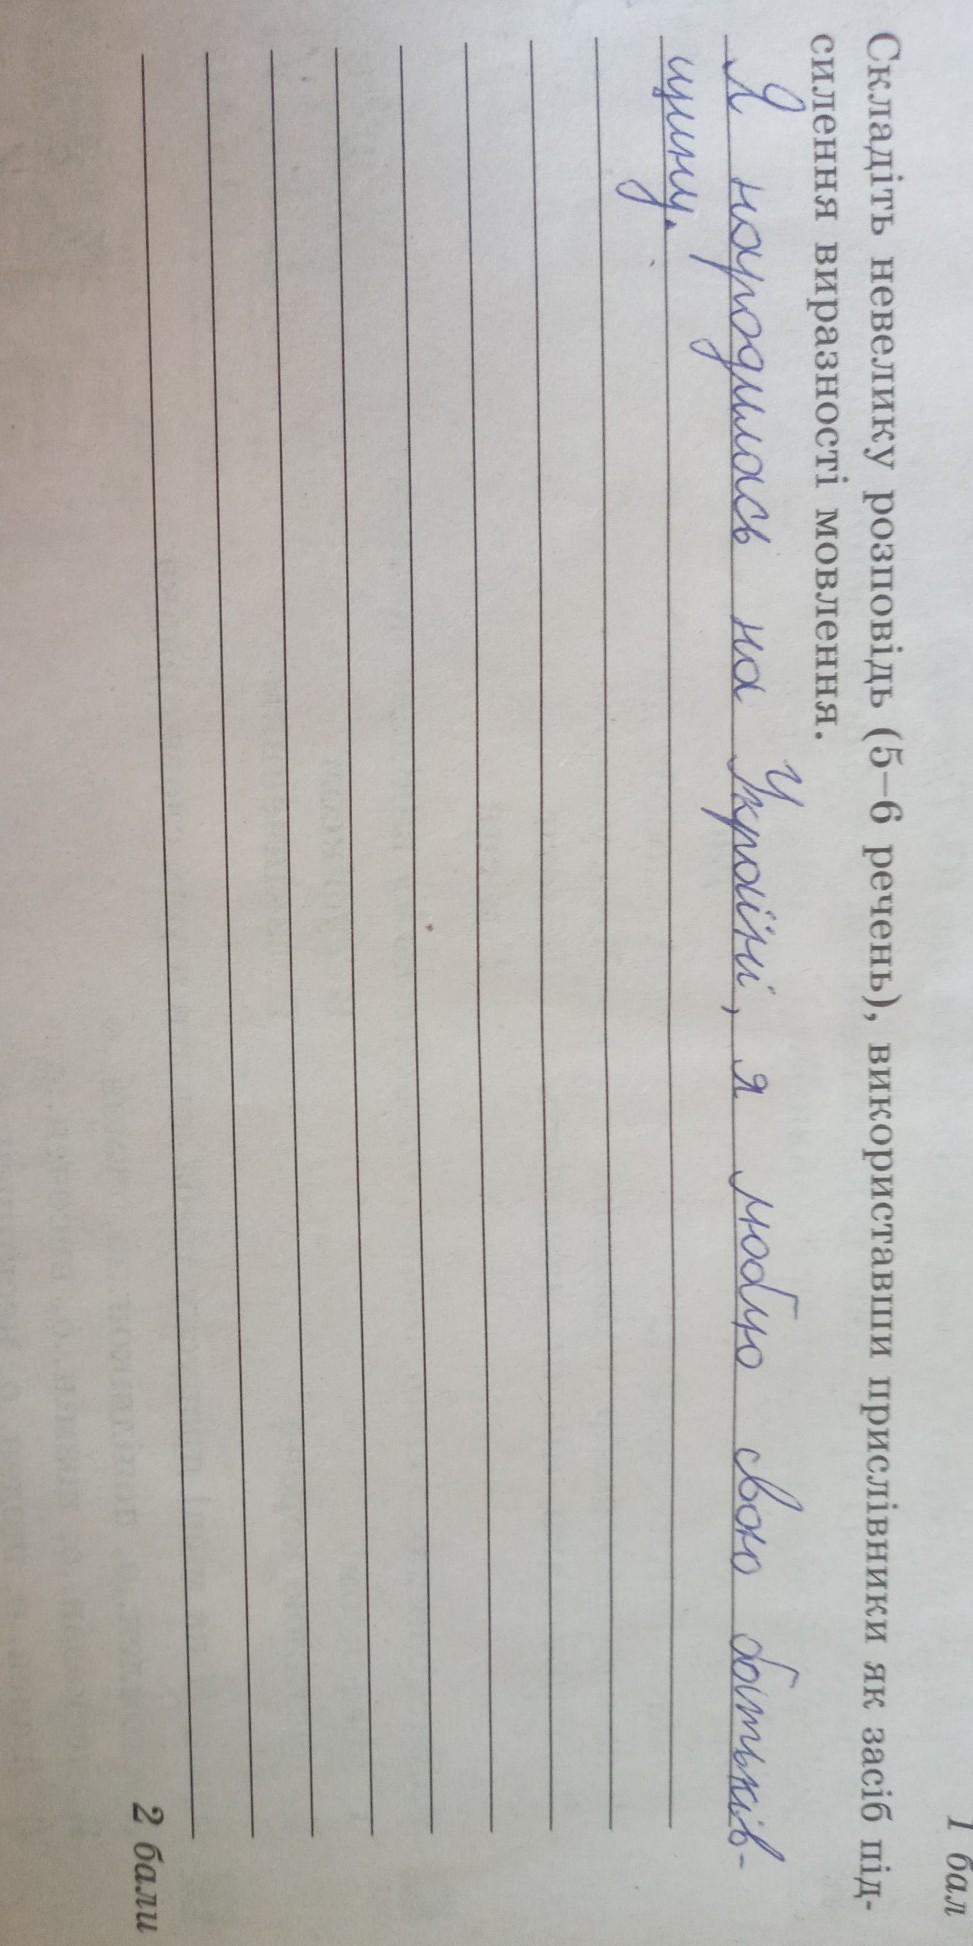 1 бал
Складіть невелику розповідь (5–6 речень), використавши прислівники як засіб під-
силення виразності мовлення.
Я народилась на Україні, я люблю свою батьків-
щину.
2 бали